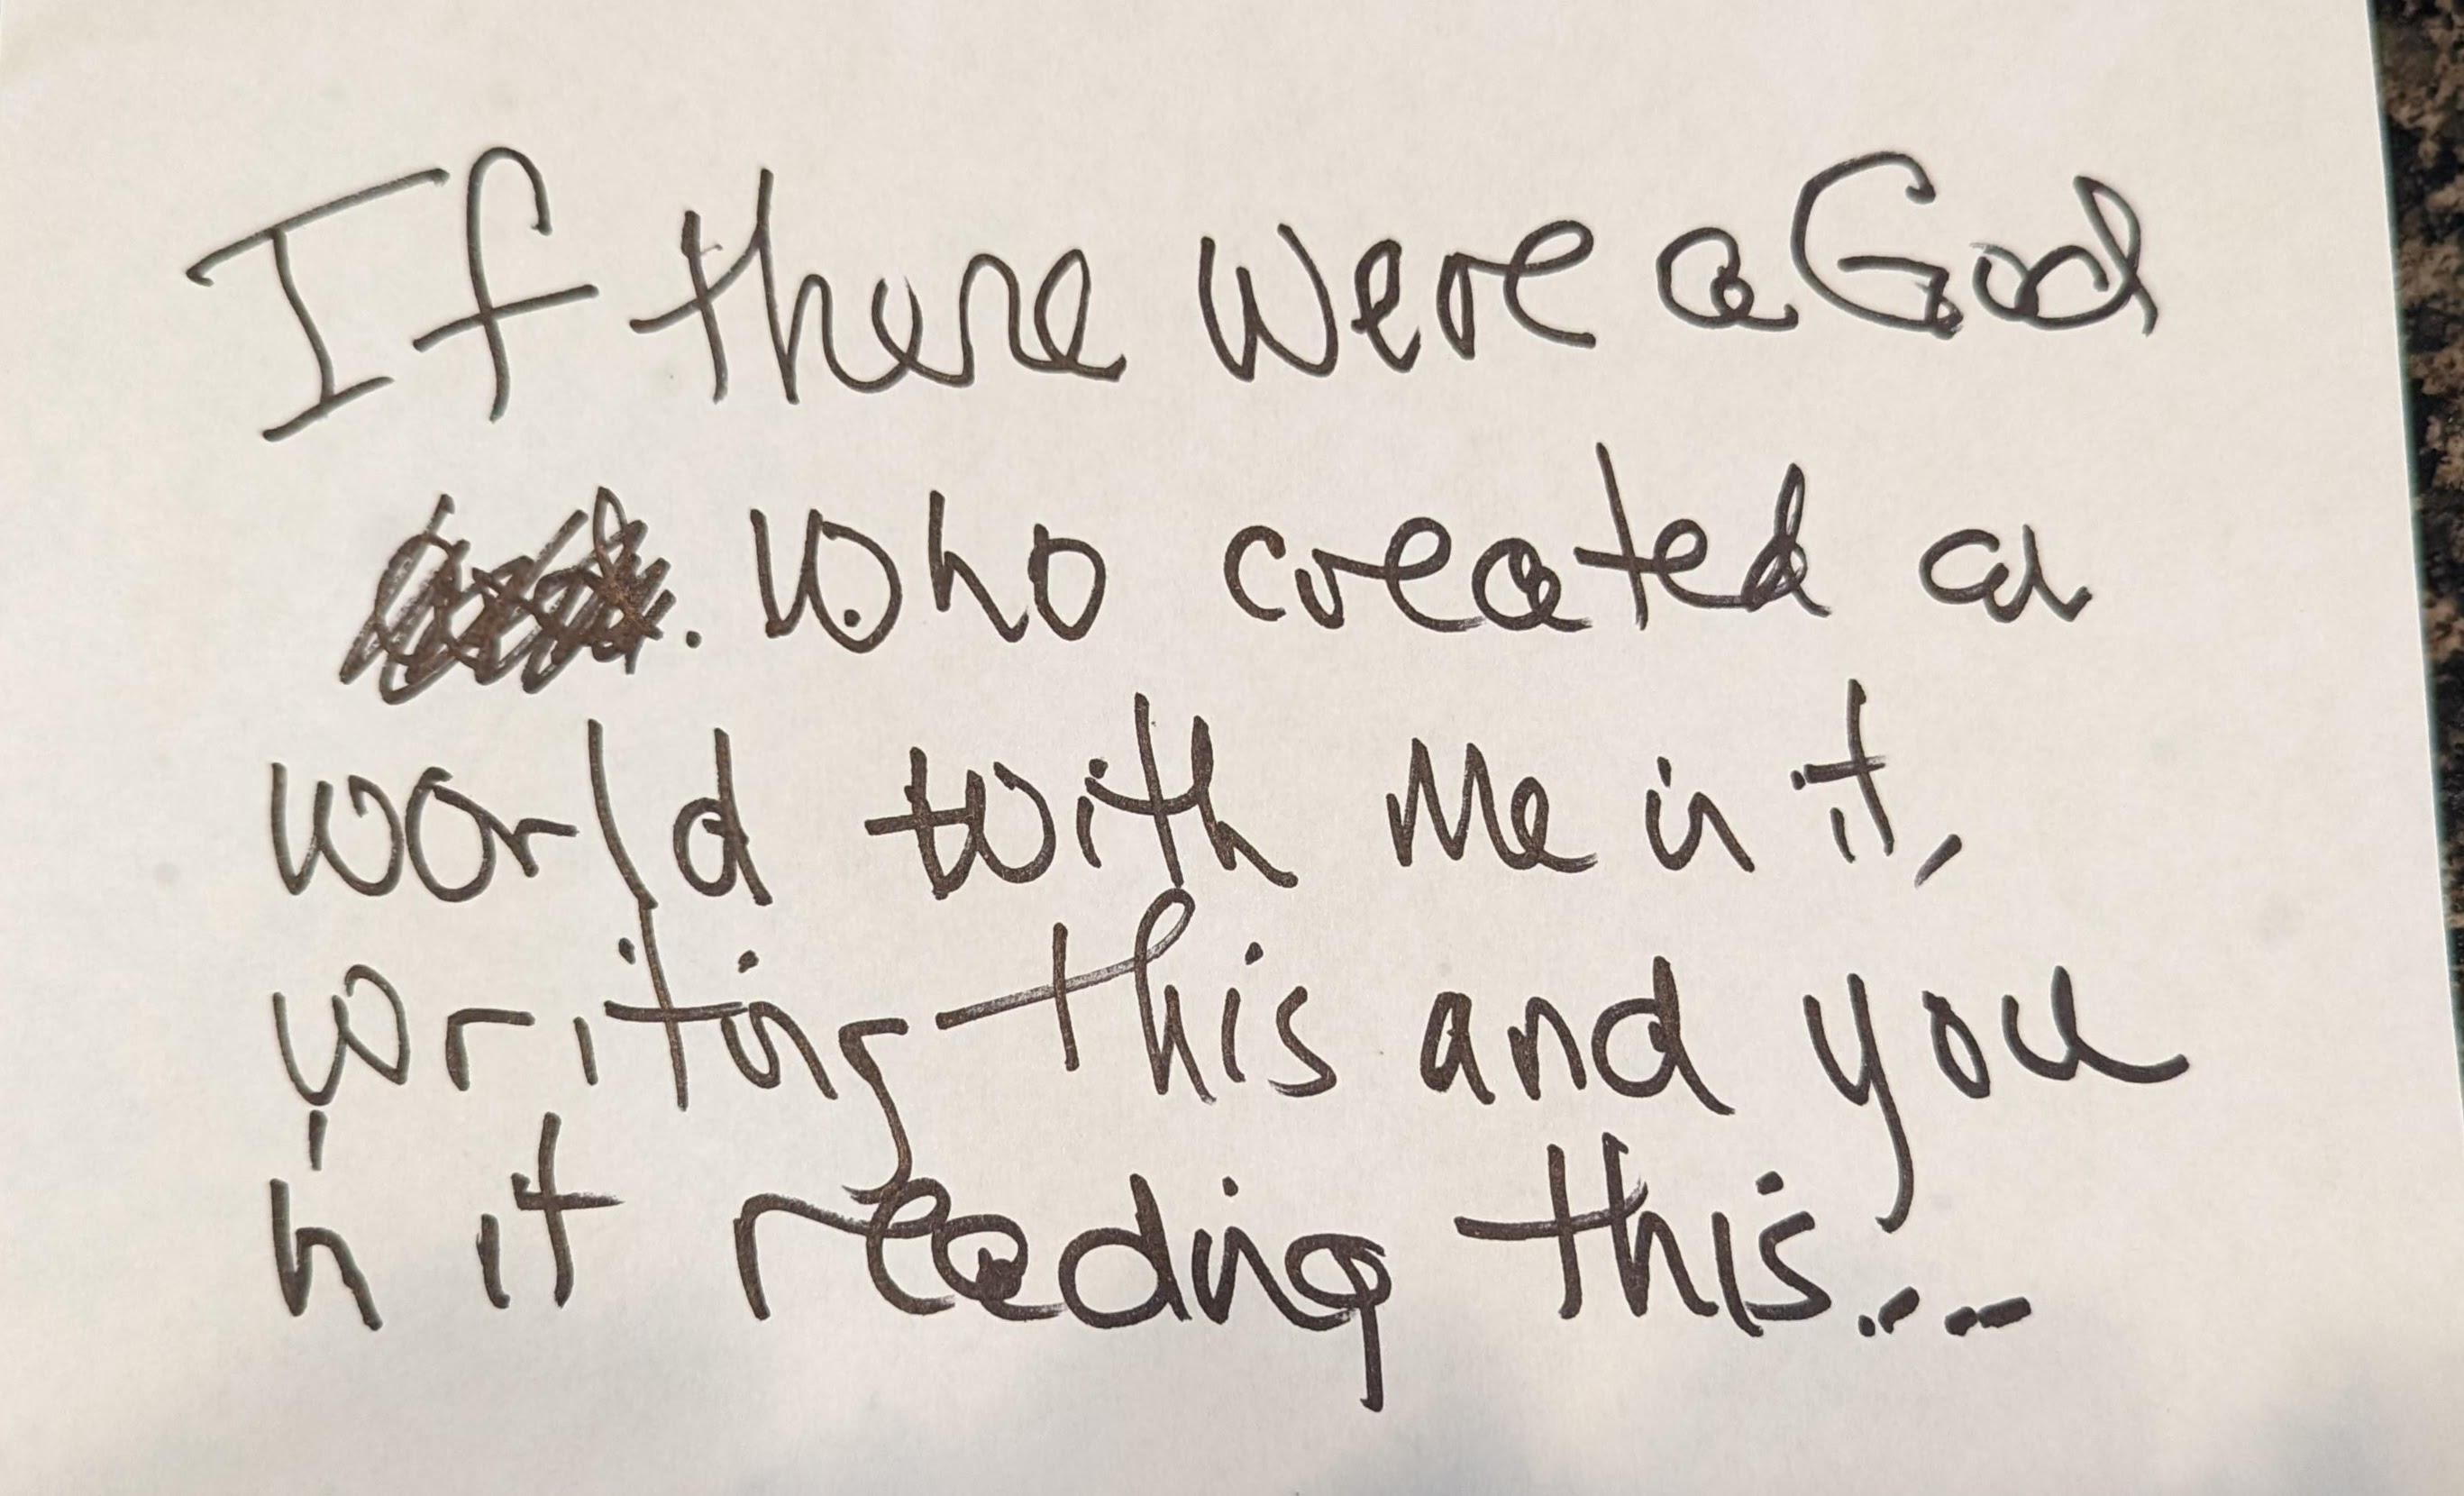 If there were a God
. who created a
world with me in it,
writing this and you
in it reading this...